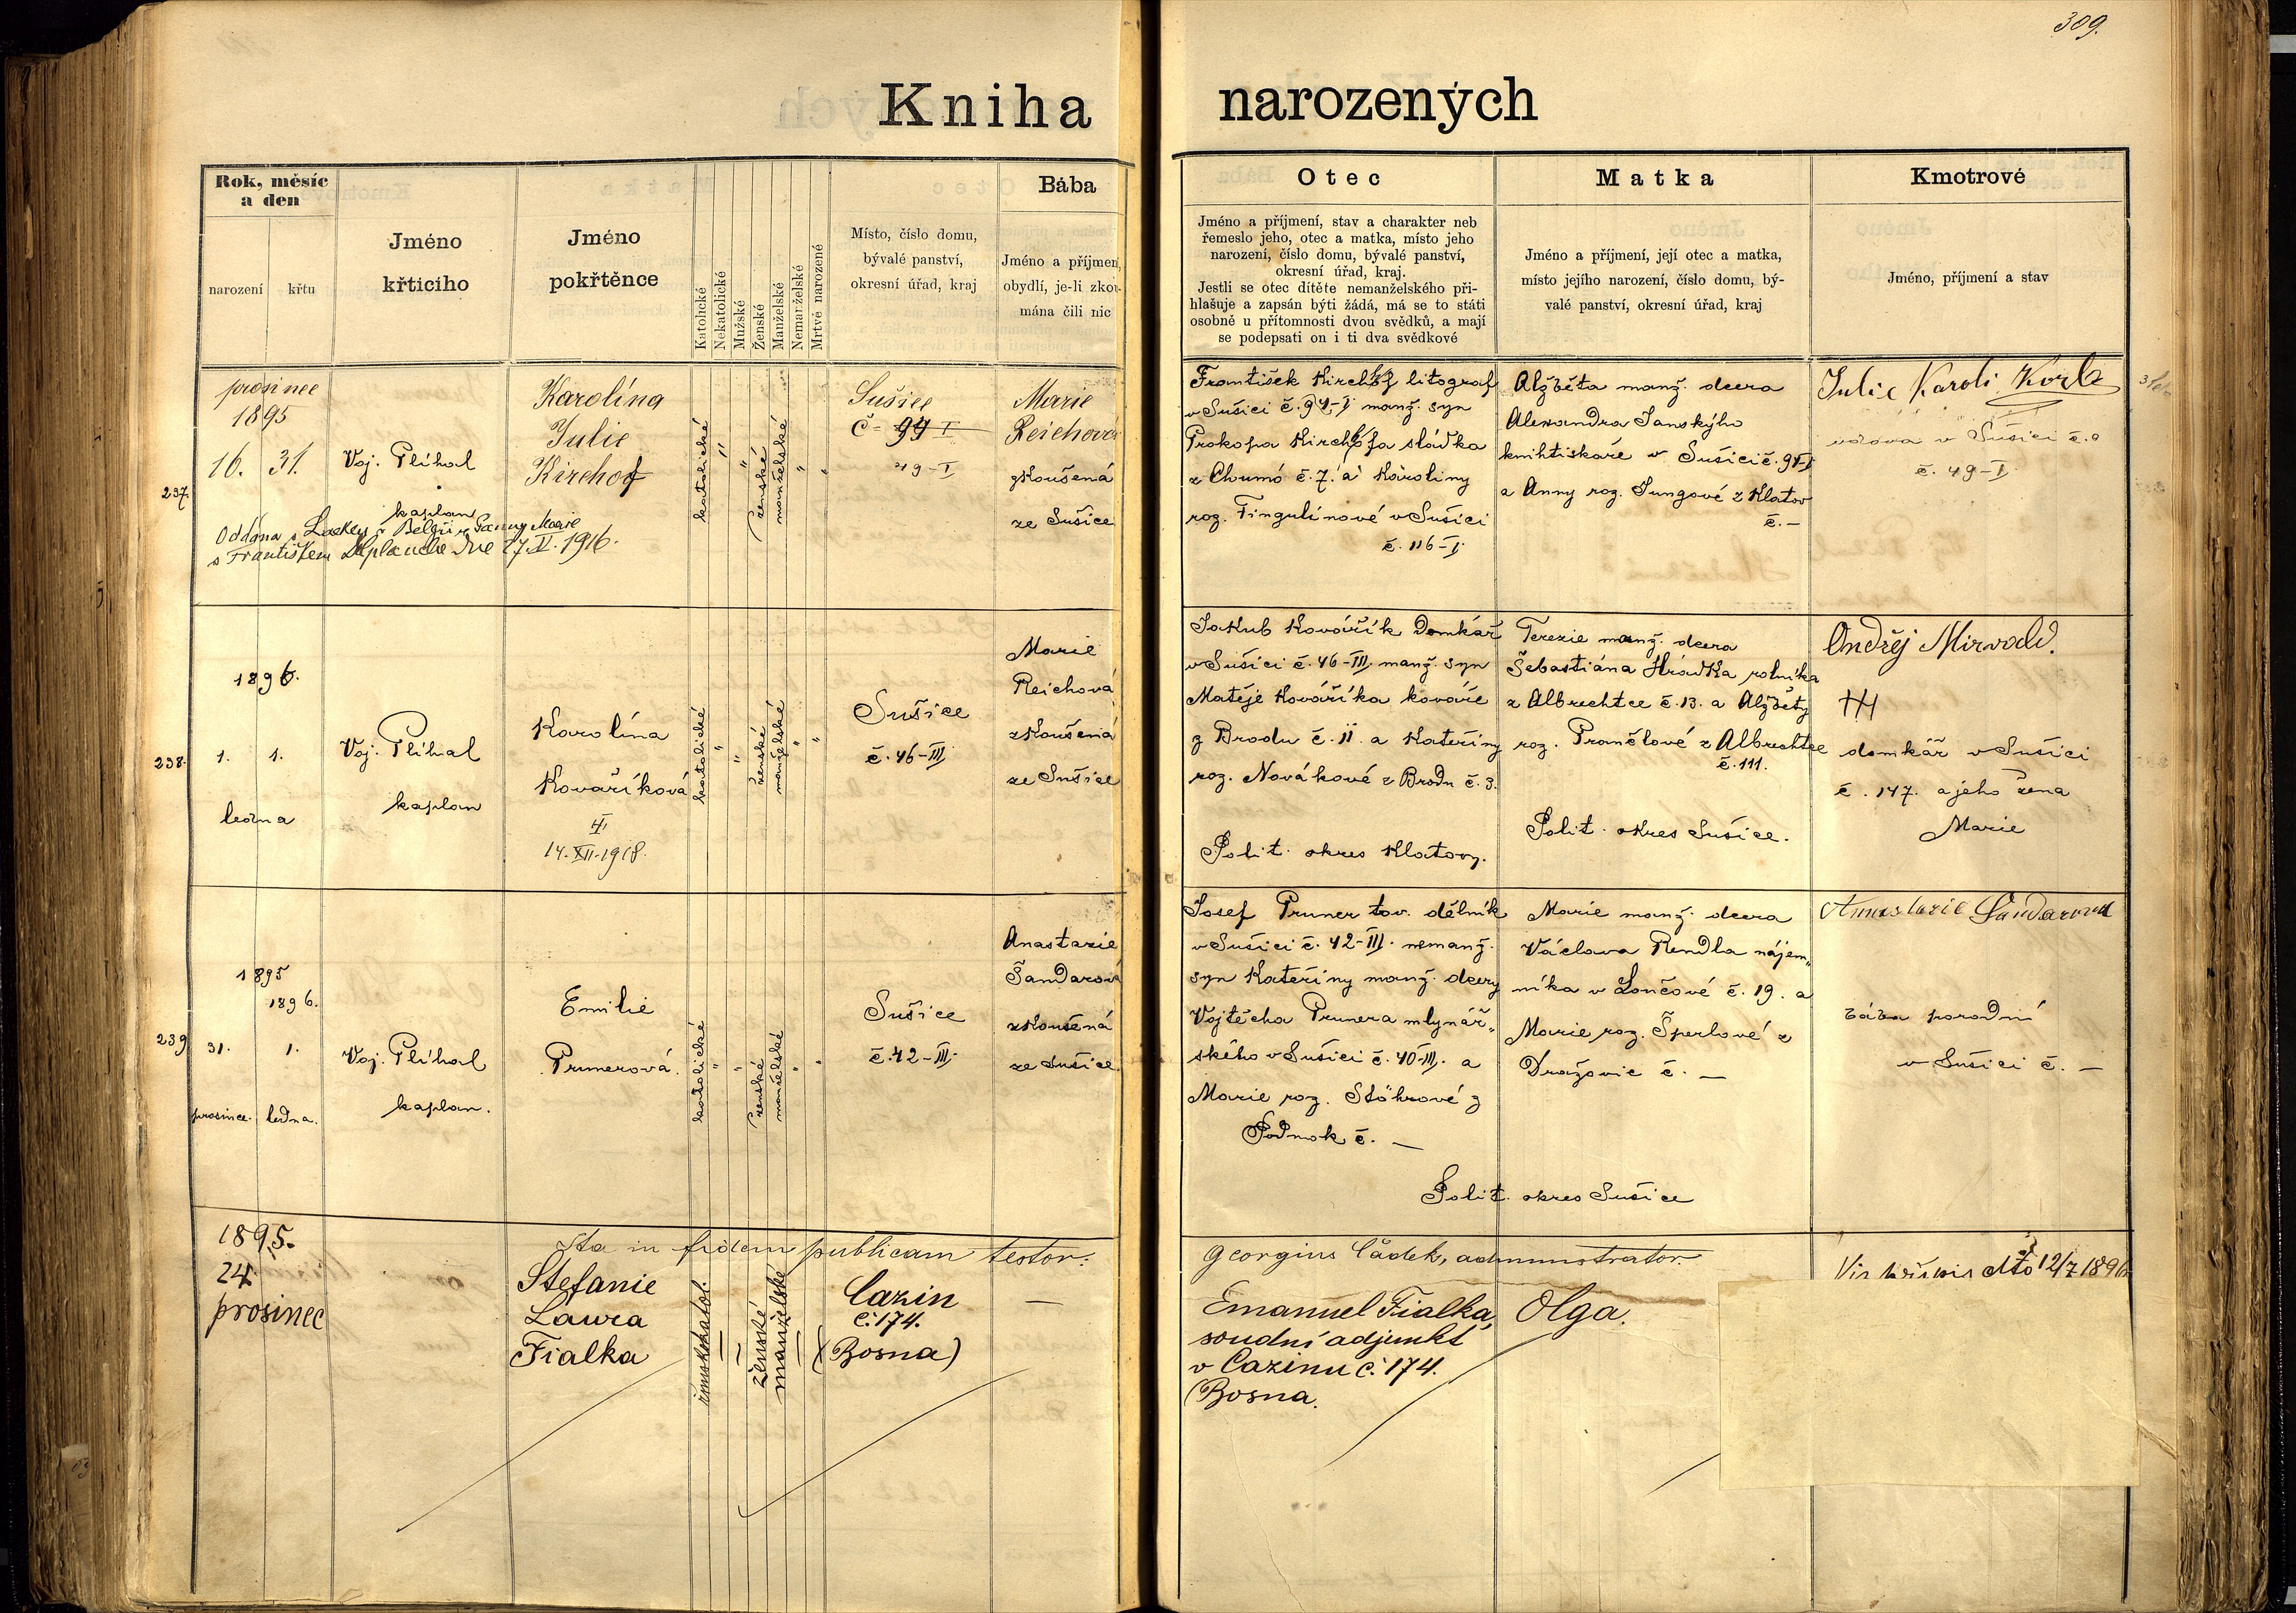 309.
Kniha narozených
Rok, měsíc
a den
narození
křtu
Jméno
křticího
Jméno
pokřtěnce
Katolické
Nekatolické
Mužské
Ženské
Manželské
Nemanželské
Mrtvě narozené
Místo, číslo domu,
bývalé panství,
okresní úřad, kraj
Bába
Jméno a příjmen,
obydlí, je-li zkou-
mána čili nic
Otec
Jméno a příjmení, stav a charakter neb
řemeslo jeho, otec a matka, místo jeho
narození, číslo domu, bývalé panství,
okresní úřad, kraj.
Jestli se otec dítěte nemanželského při-
hlašuje a zapsán býti žádá, má se to státi
osobně u přítomnosti dvou svědků, a mají
se podepsati on i ti dva svědkové
Matka
Jméno a příjmení, její otec a matka,
místo jejího narození, číslo domu, bý-
valé panství, okresní úřad, kraj
Kmotrové
Jméno, příjmení a stav
237.
prosinec
1895
16. 31.
Voj. Plíhal
kaplan
Karolína
Julie
Kirchof
katolické
ženské
manželské
Sušice
č. 94 I
49-I
Marie
Reichová
zkoušená
ze Sušice
Oddána v Belgii Marie
s Františkem dne 27.V.1916.
František Kirchof litograf
v Sušici č. 94-I manž. syn
Prokopa Kirchofa sládka
z Chumó č. 7. a Karoliny
roz. Fingulínové v Sušici
č. 116-I.
Alžběta manž. dcera
Alexandra Janskýho
knihtiskaře v Sušici č. 94-I
a Anny roz. Jungové z Klatov
č. —
Julie Karoli
vdova v Sušici č.
č. 49-I
238.
1896.
1. 1.
ledna
Voj. Plíhal
kaplan
Karolína
Kovaříková
14. XII. 1918.
katolické
ženské
manželské
Sušice
č. 46-III
Marie
Reichová
zkoušená
ze Sušice
Jakub Kovářík domkář
v Sušici č. 46-III manž. syn
Matěje Kováříka kováře
z Brodu č. 11. a Kateřiny
roz. Novákové z Brodu č. 3.
Polit. okres Klatovy.
Terezie manž. dcera
Šebastiána Hrádka rolníka
z Albrechtce č. 13. a Alžběty
roz. Prančlové z Albrechtce
č. 111.
Polit. okres Sušice.
Ondřej Mirvald.
domkář v Sušici
č. 147. a jeho žena
Marie
239
1895
1896.
31. 1.
prosince. ledna.
Voj. Plíhal
kaplan.
Emilie
Prunerová.
katolické
ženské
manželské
Sušice
č. 42-III.
Anastazie
Šandarová
zkoušená
ze Sušice
Josef Pruner tov. dělník
v Sušici č. 42-III. nemanž.
syn Kateřiny manž. dcery
Vojtěcha Prunera mlynář-
ského v Sušici č. 40-III. a
Marie roz. Stöhrové z
Podmok č. —
Marie manž. dcera
Václava Rendla nájem-
níka v Lončové č. 19. a
Marie roz. Šperlové z
Dražovic č. —
Polit. okres Sušice
Anastazie Šandarová
bába porodní
v Sušici č. —
Ita in fidem publicam testor: Georgius Čádek, administrator.
1895.
24.
prosinec
Stefanie
Laura
Fialka
římskokatol.
ženské
manželské
Cazin
č. 174.
(Bosna)
Emanuel Fialka,
soudní adjunkt
v Cazinu č. 174.
(Bosna.
Olga.
12/7 1896